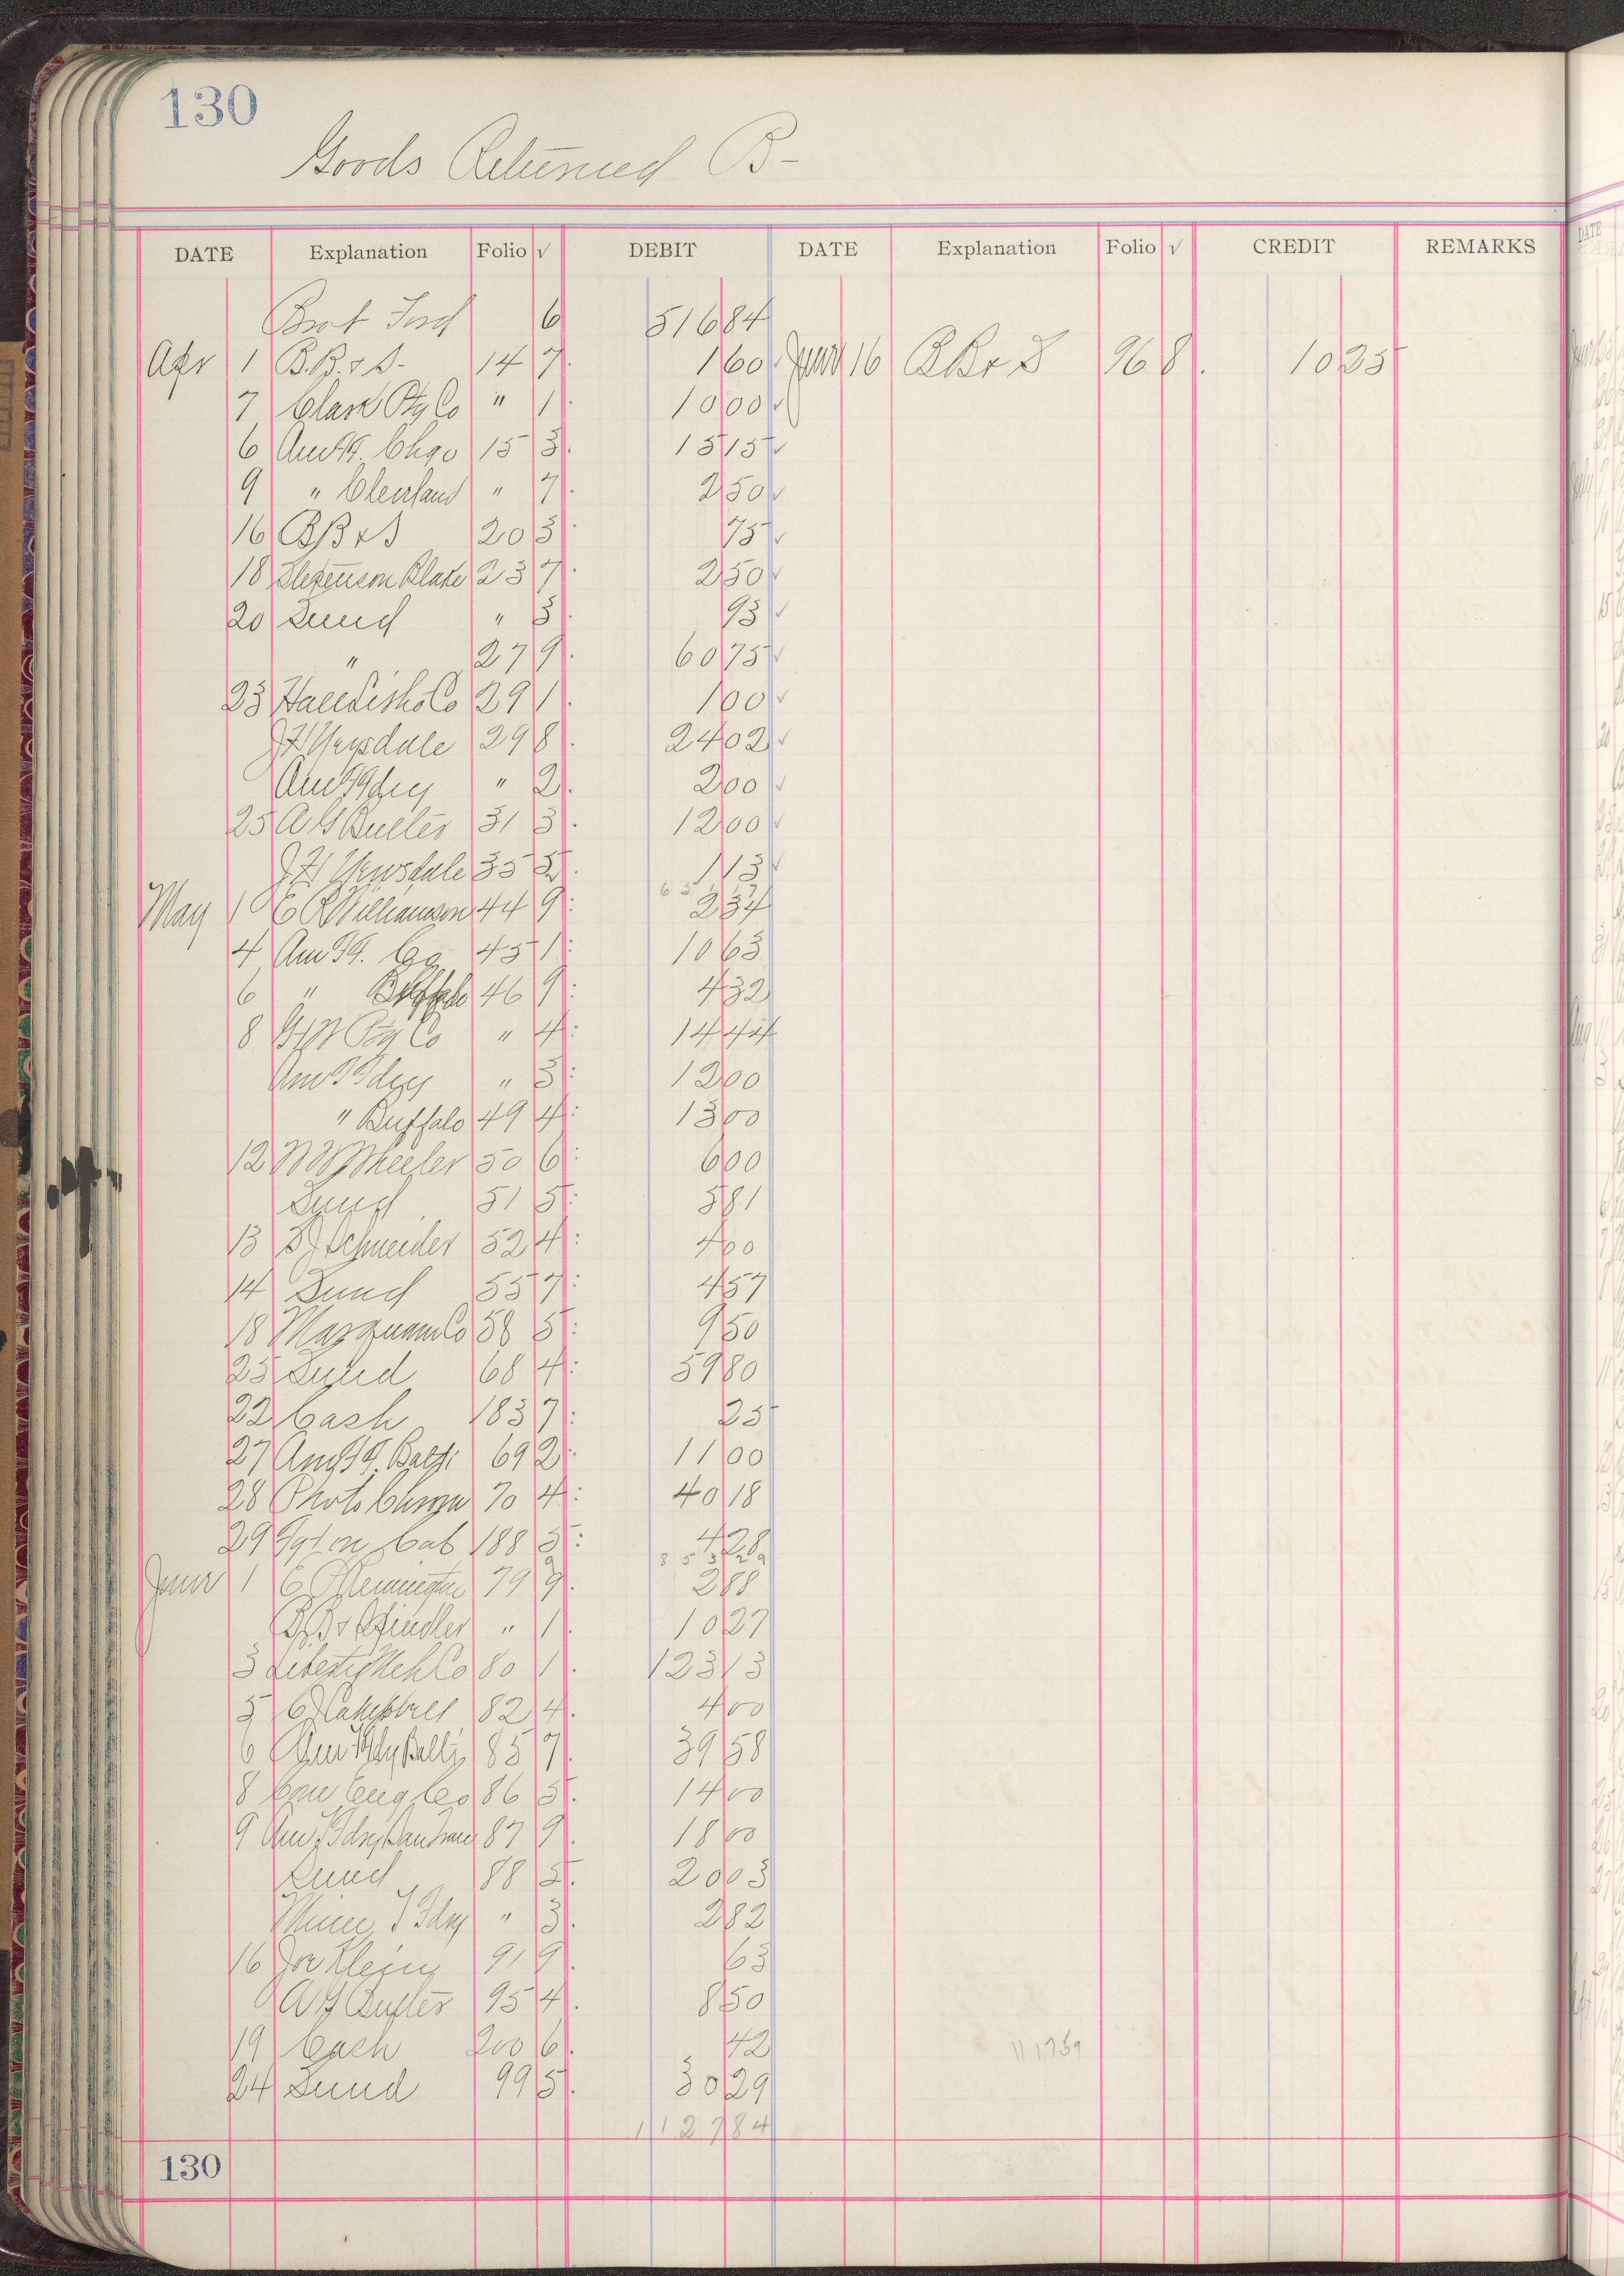 130
Goods Returned B-
DATE Explanation Folio √ DEBIT DATE Explanation Folio √ CREDIT REMARKS
Brot Ford 6 516 84
Apr 1 B.B. & S. 14 7 1 60 June 16 B B & S 96 8 10 25
7 Clark Ptg Co " 1 10 00
6 Am T F. Chgo 15 3 15 15
9 " Cleveland " 7 2 50
16 B B & S 20 3 75
18 Stephenson Blake 23 7 2 50
20 Sund " 3 93
" 27 9 60 75
23 Co 29 1 1 00
29 8 24 02
Am T Fdry " 2 2 00
25 A G Butler 31 3 12 00
35 5 1 13
May 1 E R Williamson 44 9 2 34
4 Am T F. 45 1 10 63
6 " Buffalo 46 9 4 32
8 Ptg Co " 4 14 44
Am T Fdry " 3 12 00
" Buffalo 49 4 13 00
12 Wheeler 50 6 6 00
Sund 51 5 5 81
13 Schneider 52 4 4 00
14 Sund 55 7 4 57
18 Marquam Co 58 5 9 50
25 Sund 68 4 59 80
22 Cash 183 7 25
27 Am T F. Balti 69 2 11 00
28 Photo Chrom 70 4 40 18
29 Cab 188 5 4 28
June 1 E Remington 79 9 2 88
B B & Spindler " 1 10 27
3 Liberty Mch Co 80 1 123 13
5 Campbell 82 4 4 00
6 Am T Fdry Balti 85 7 39 58
8 Eng Co 86 5 14 00
9 Am T Fdry San Fran 87 9 18 00
Sund 88 5 20 03
T Fdry " 3 2 82
16 Jos Klein 91 9 63
A G Butler 95 4 8 50
19 Cash 200 6 42
24 Sund 99 5 30 29
1127 84
1117 59
130